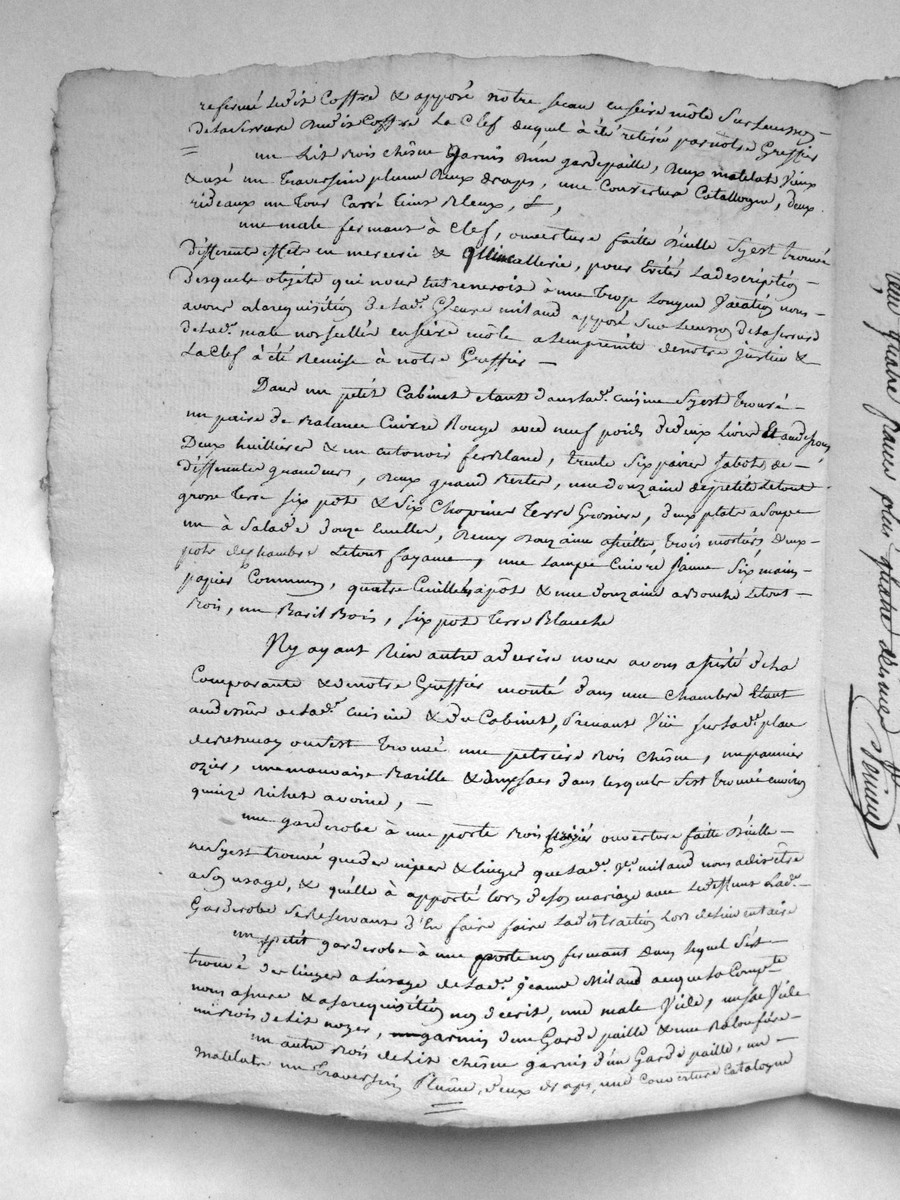 refermé ledit Coffre & apposé notre sceau en seire môle sur l'eusson
de la serrure dudit Coffre La Clef duquel à été retirée par notre Greffier
un Lit Bois chêne garnis d'un gardepaille, deux matelats vieux
& usé un traversin plume deux draps, une Couverture Catallogne, deux
rideaux un tour Carré bleux, &,
une male fermant à Clef, ouverture faitte d'icelle S'y est trouvé
different effets en mercerie & quincallerie, pour Evités La description
desquels objéts qui nous à une trop Longue vacation nous
avons a la requisition de lad.e Jeanne miland apposé sur l'eusson de la serrure
de lad.e male en seire môle a l'empreinte de notre justice &
La Clef à été Remise à notre Greffier
Dans un petit Cabinet etant dans lad.e cuisine S'y est trouvé
un paire de Balance Cuivre Rouge avec neuf poids de deux Livres Et au dessous
Deux huilliers & un entonoir fer blanc, trente six paires sabots de
differentes grandeurs, deux grand , une douzaine de petits Le tout
grosse terre six pots & six Chopines terre Grossiere, deux plats a soupe
un à salade douze Ecuelles, demy douzaine assiettes, trois mortiers, deux
pots de chambre Le tout fayance, une Lampe Cuivre jaune Six mains
papier Commun, quatre Cuillés à pôt & une douzaine a Bouche Le tout
Bois, un Baril Bois, six pots terre Blanche
N'y ayant Rien autre a decrire nous avons assisté de la
Comparante & de notre Greffier monté dans une chambre Etant
au dessûs de lad.e cuisine & du Cabinet, Prenant sur lad.e place
ou s'est trouvé une petriere Bois chêne, un pannier
ozier, une mauvaise Barille & deux sacs dans lesquels s'est trouvé environ
quinze Bichets avoine,
une garderobe à une porte Bois ouverture faitte d'icelle
ne s'y est trouvé que des nipes & linges que lad.e J.e miland nous a dit être
a son usage, & qu'elle à apporté lors de son mariage avec Led. deffunt Lad.e
Garderobe se Reservant d'En faire faire La distraction Lors de l'inventaire
un petit garderobe à une porte non fermant dans lequel s'est
trouvé des linges a l'usage de lad.e jeanne Miland ainsy que la Comp.te
nous assure & a sa requisition non decrit, une male Vide, Vide
un Bois de Lit noyer, garnis d'un Garde paille & une
un autre Bois de Lit chêne garnis d'un Garde paille, un
matelats un traversin Plume, deux draps, une couverture Catalogne